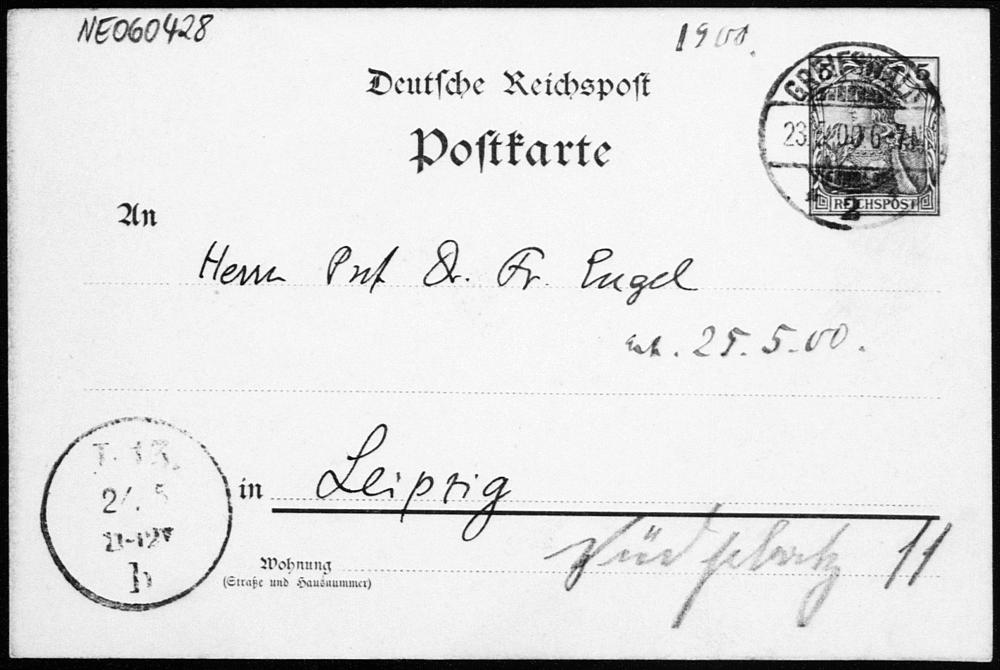 NE060428
1900.
Deutsche Reichspost
Postkarte
5
GREIFSWALD
23. 00 6-7N
REICHSPOST
2
An
Herrn Prof Dr. Fr. Engel
25.5.00.
5
11-12V
b
in
Leipzig
Südplatz 11
Wohnung
(Straße und Hausnummer)